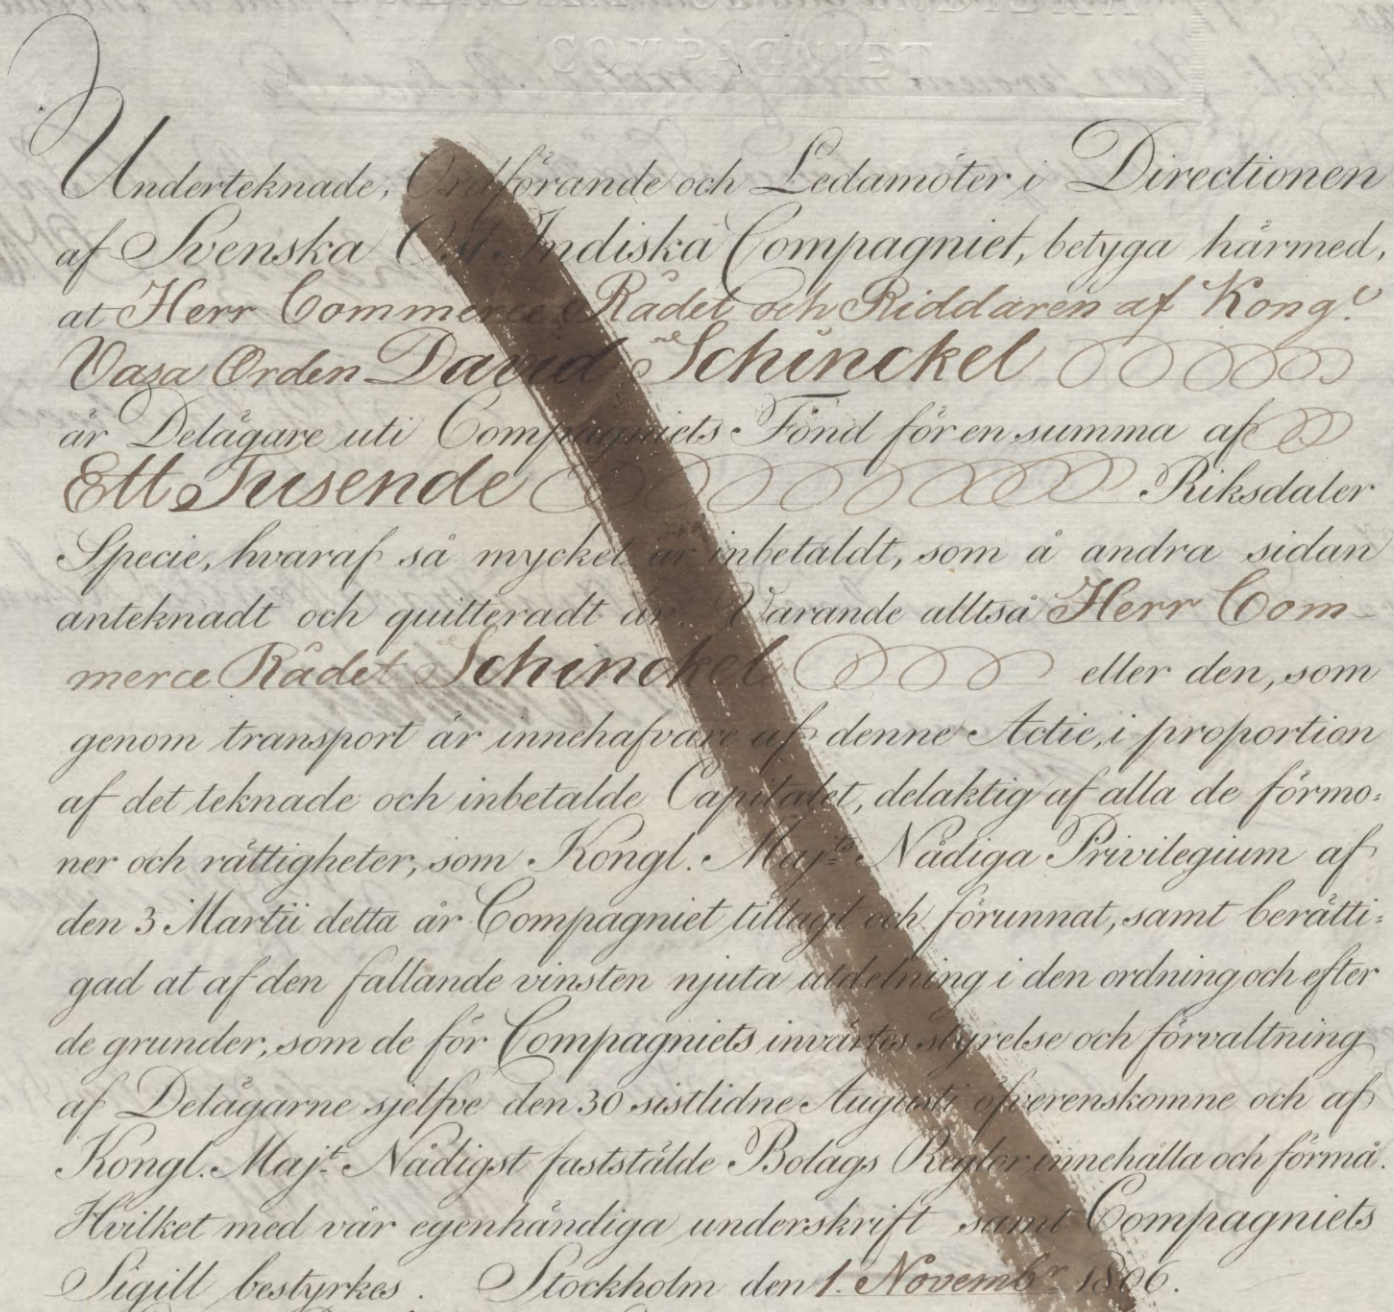 COMPAGNIET
Underteknade, Ordförande och Ledamöter i Directionen
af Svenska Ost Indiska Compagniet, betyga härmed,
at Herr Commerce Rådet och Riddaren af Kongl.
Vasa Orden David Schinckel
är Delägare uti Compagniets Fond för en summa af
Ett Tusende Riksdaler
Specie, hvaraf så mycket är inbetaldt, som å andra sidan
anteknadt och quitteradt är. Varande alltså Herr Com-
merce Rådet Schinckel eller den, som
genom transport är innehafvare af denne Actie, i proportion
af det teknade och inbetalde Capitalet, delaktig af alla de förmo:
ner och rättigheter, som Kongl. Maj:ts Nådiga Privilegium af
den 3 Martii detta år Compagniet tillagt och förunnat, samt berätti:
gad at af den fallande vinsten njuta utdelning i den ordning och efter
de grunder, som de för Compagniets invärtes styrelse och förvaltning
af Delägarne sjelfve den 30 sistlidne Augusti öfverenskomne och af
Kongl. Maj:t Nådigst fastställde Bolags Reglor innehålla och förmå.
Hvilket med vår egenhändiga underskrift samt Compagniets
Sigill bestyrkes. Stockholm den 1. Novembr 1806.